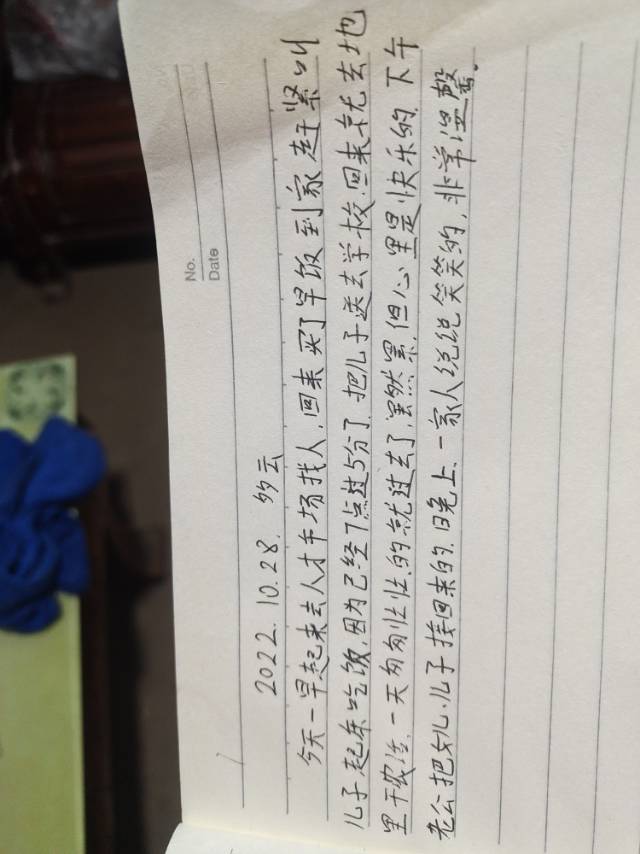 No.
Date
2022.10.28. 多云
今天一早起来去人才市场找人,回来买了早饭到家赶紧叫
儿子起来吃饭,因为已经7点过5分了,把儿子送去学校,回来就去地
里干农活,一天匆匆忙忙的就过去了,虽然累,但心里是快乐的,下午
老公把女儿、儿子接回来的,晚上、一家人说说笑笑的,非常温馨。